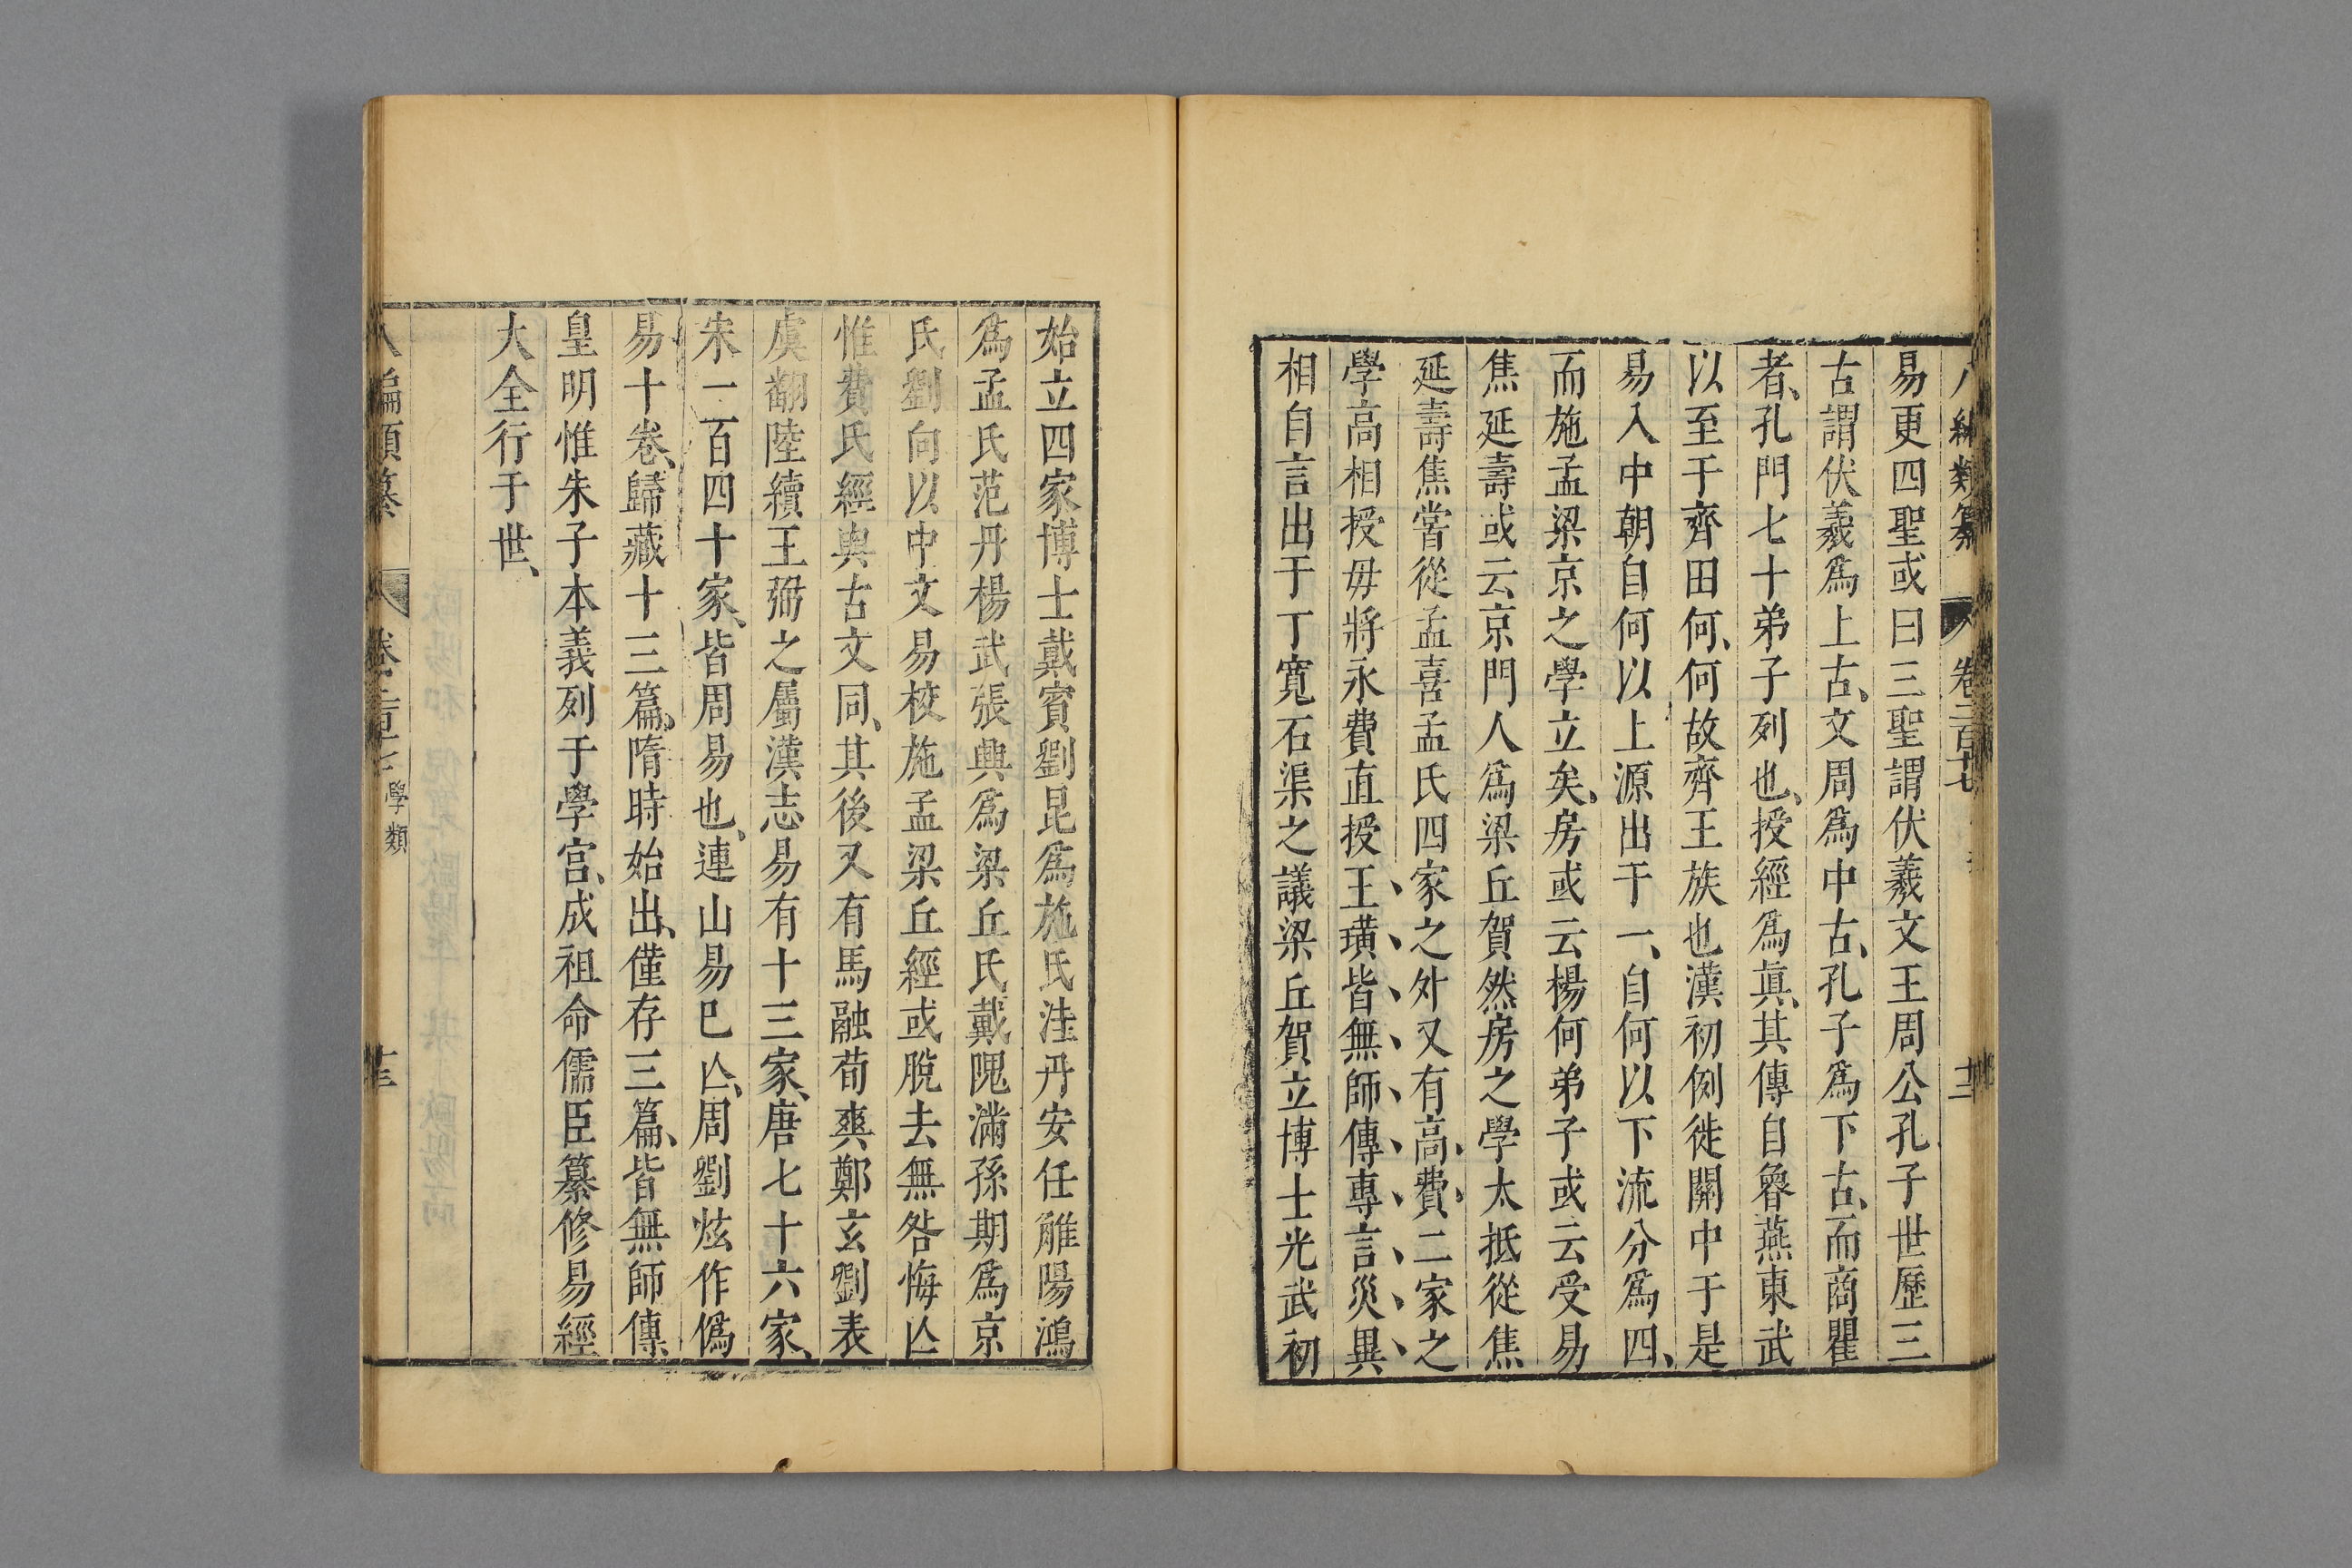 八編類纂 卷二百十七 十二
易更四聖或曰三聖謂伏羲文王周公孔子世歷三
古謂伏羲爲上古、文周爲中古、孔子爲下古、而商瞿
者、孔門七十弟子列也、授經爲眞、其傳自魯燕東武
以至于齊田何、何故齊王族也漢初例徙關中于是
易入中朝自何以上源出于一、自何以下流分爲四、
而施孟梁京之學立矣、房或云楊何弟子或云受易
焦延壽或云京門人爲梁丘賀然房之學太抵從焦
延壽焦嘗從孟喜孟氏四家之外又有高、費、二家之
學高相授毋將永費直授王、璜、皆、無、師、傳、專、言、災、異、
相自言出于丁寬石渠之議梁丘賀立博士光武初
始立四家博士戴賓劉昆爲施氏洼丹安任觟陽鴻
爲孟氏范丹楊武張興爲梁丘氏戴隗滿孫期爲京
氏劉向以中文易校施孟梁丘經或脫去無咎悔亾
惟費氏經與古文同、其後又有馬融荀爽鄭玄劉表
虞翻陸續王弼之屬漢志易有十三家、唐七十六家、
宋一百四十家、皆周易也、連山易已亾、周劉炫作僞
易十卷、歸藏十三篇、隋時始出、僅存三篇、皆無師傳
皇明惟朱子本義列于學宫、成祖命儒臣纂修易經
大全行于世、
八編類纂 卷二百十七 學類 十三